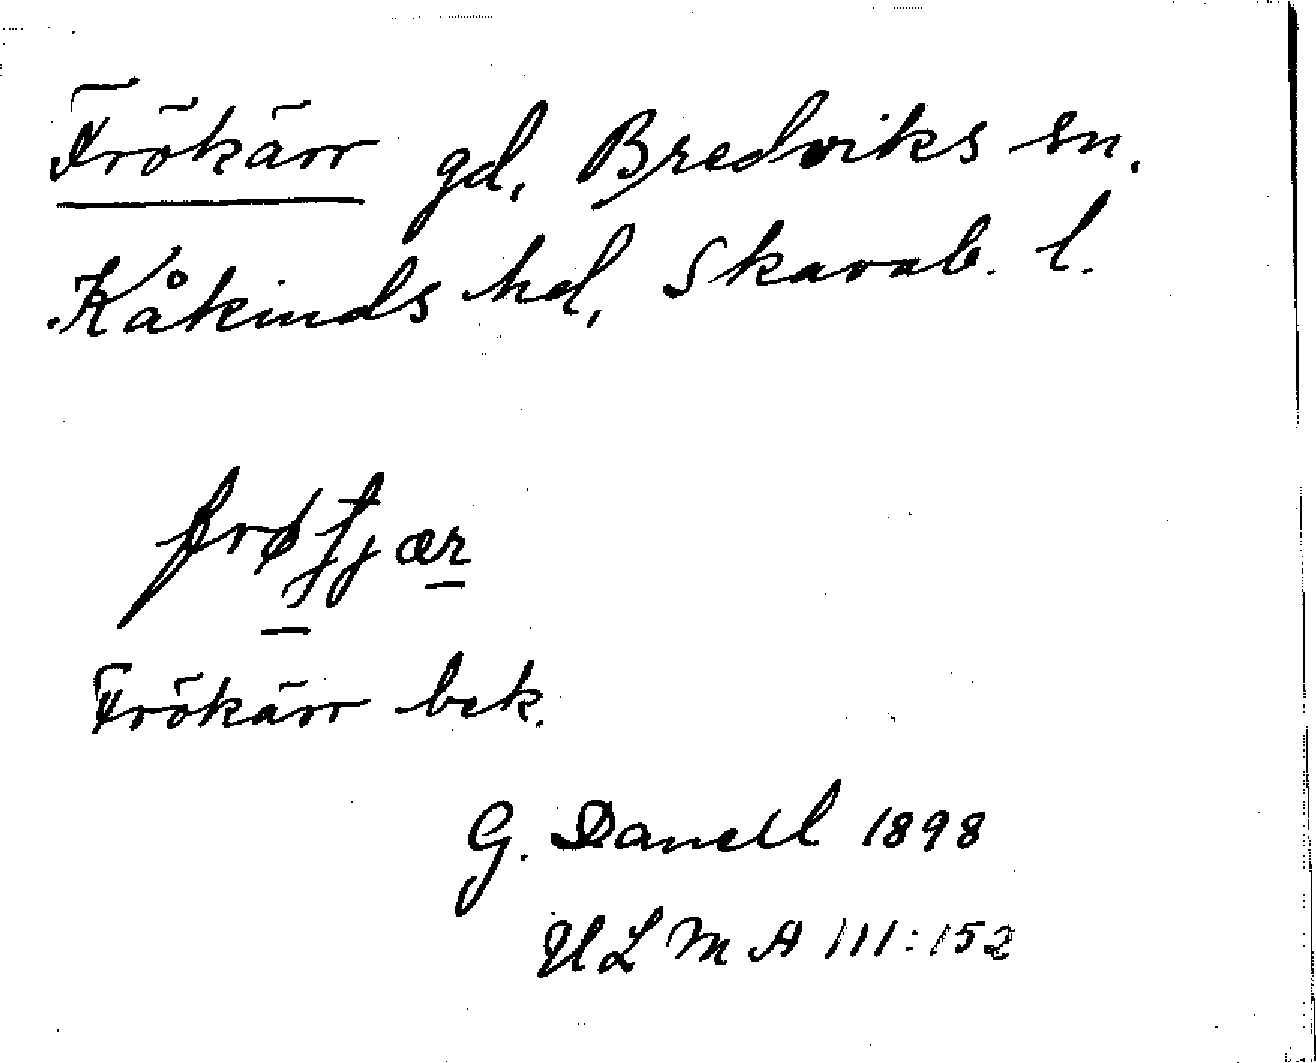 Frökärr gd, Bredviks sn.
Kåkinds hd, Skarab. l.
Frökärr bek.
G. Danell 1898
ULMA 111:152